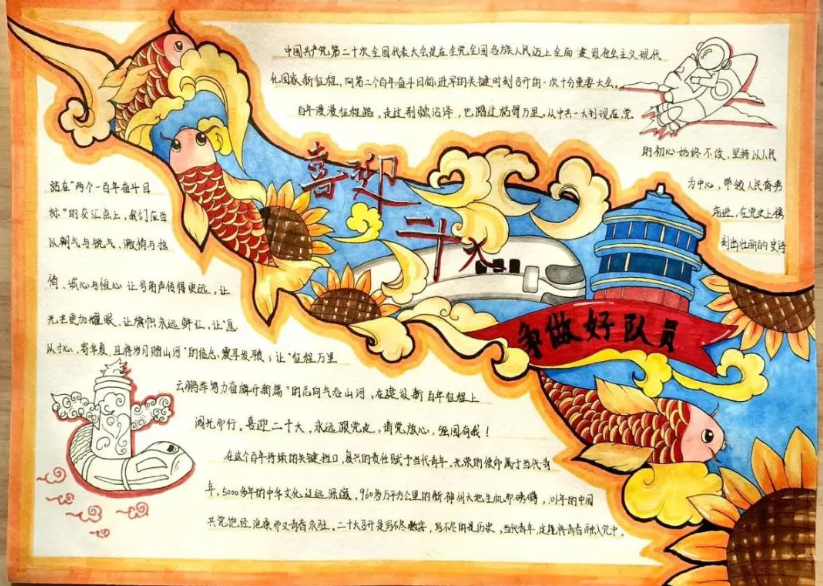 中国共产党第二十次全国代表大会是在全党全国各族人民迈上全面建设社会主义现代
化国家新征程,向第二个百年奋斗目标进军的关键时刻召开的一次十分重要大会。
百年漫漫征程路,走过荆棘泥泞,也踏过旖旎万里。从中共一大到现在,党
的初心始终不改,坚持以人民
为中心,带领人民奋勇
前进,在党史上镌
刻出壮丽的史诗
喜迎
二十大
争做好队员
站在"两个一百年奋斗目
标"的交汇点上,我们应当
以朝气与锐气、激情与热
情、诚心与恒心 让号角声传得更远,让
光芒更加耀眼、让旗帜永远鲜红,让"
从寸心,寄华夏,且将岁月赠山河"的信念、震耳发聩;让"征程万里
云鹏举 努力奋 开新篇"的志向气吞山河,在建设新百年征程上
闪光前行。喜迎二十大,永远跟党走,请党放心,强国有我!
在这个百年持续的关键档口,复兴的责任赋予当代青年,光荣的使命属于当代青
年。5000多年的中华文化 辽远 960多万平方公里的新神州大地生机 101年的中国
共党饱经沧桑却又青春永驻。二十大召开是写不尽 写不尽的是历史,当代青年,定能将青春融入党中。